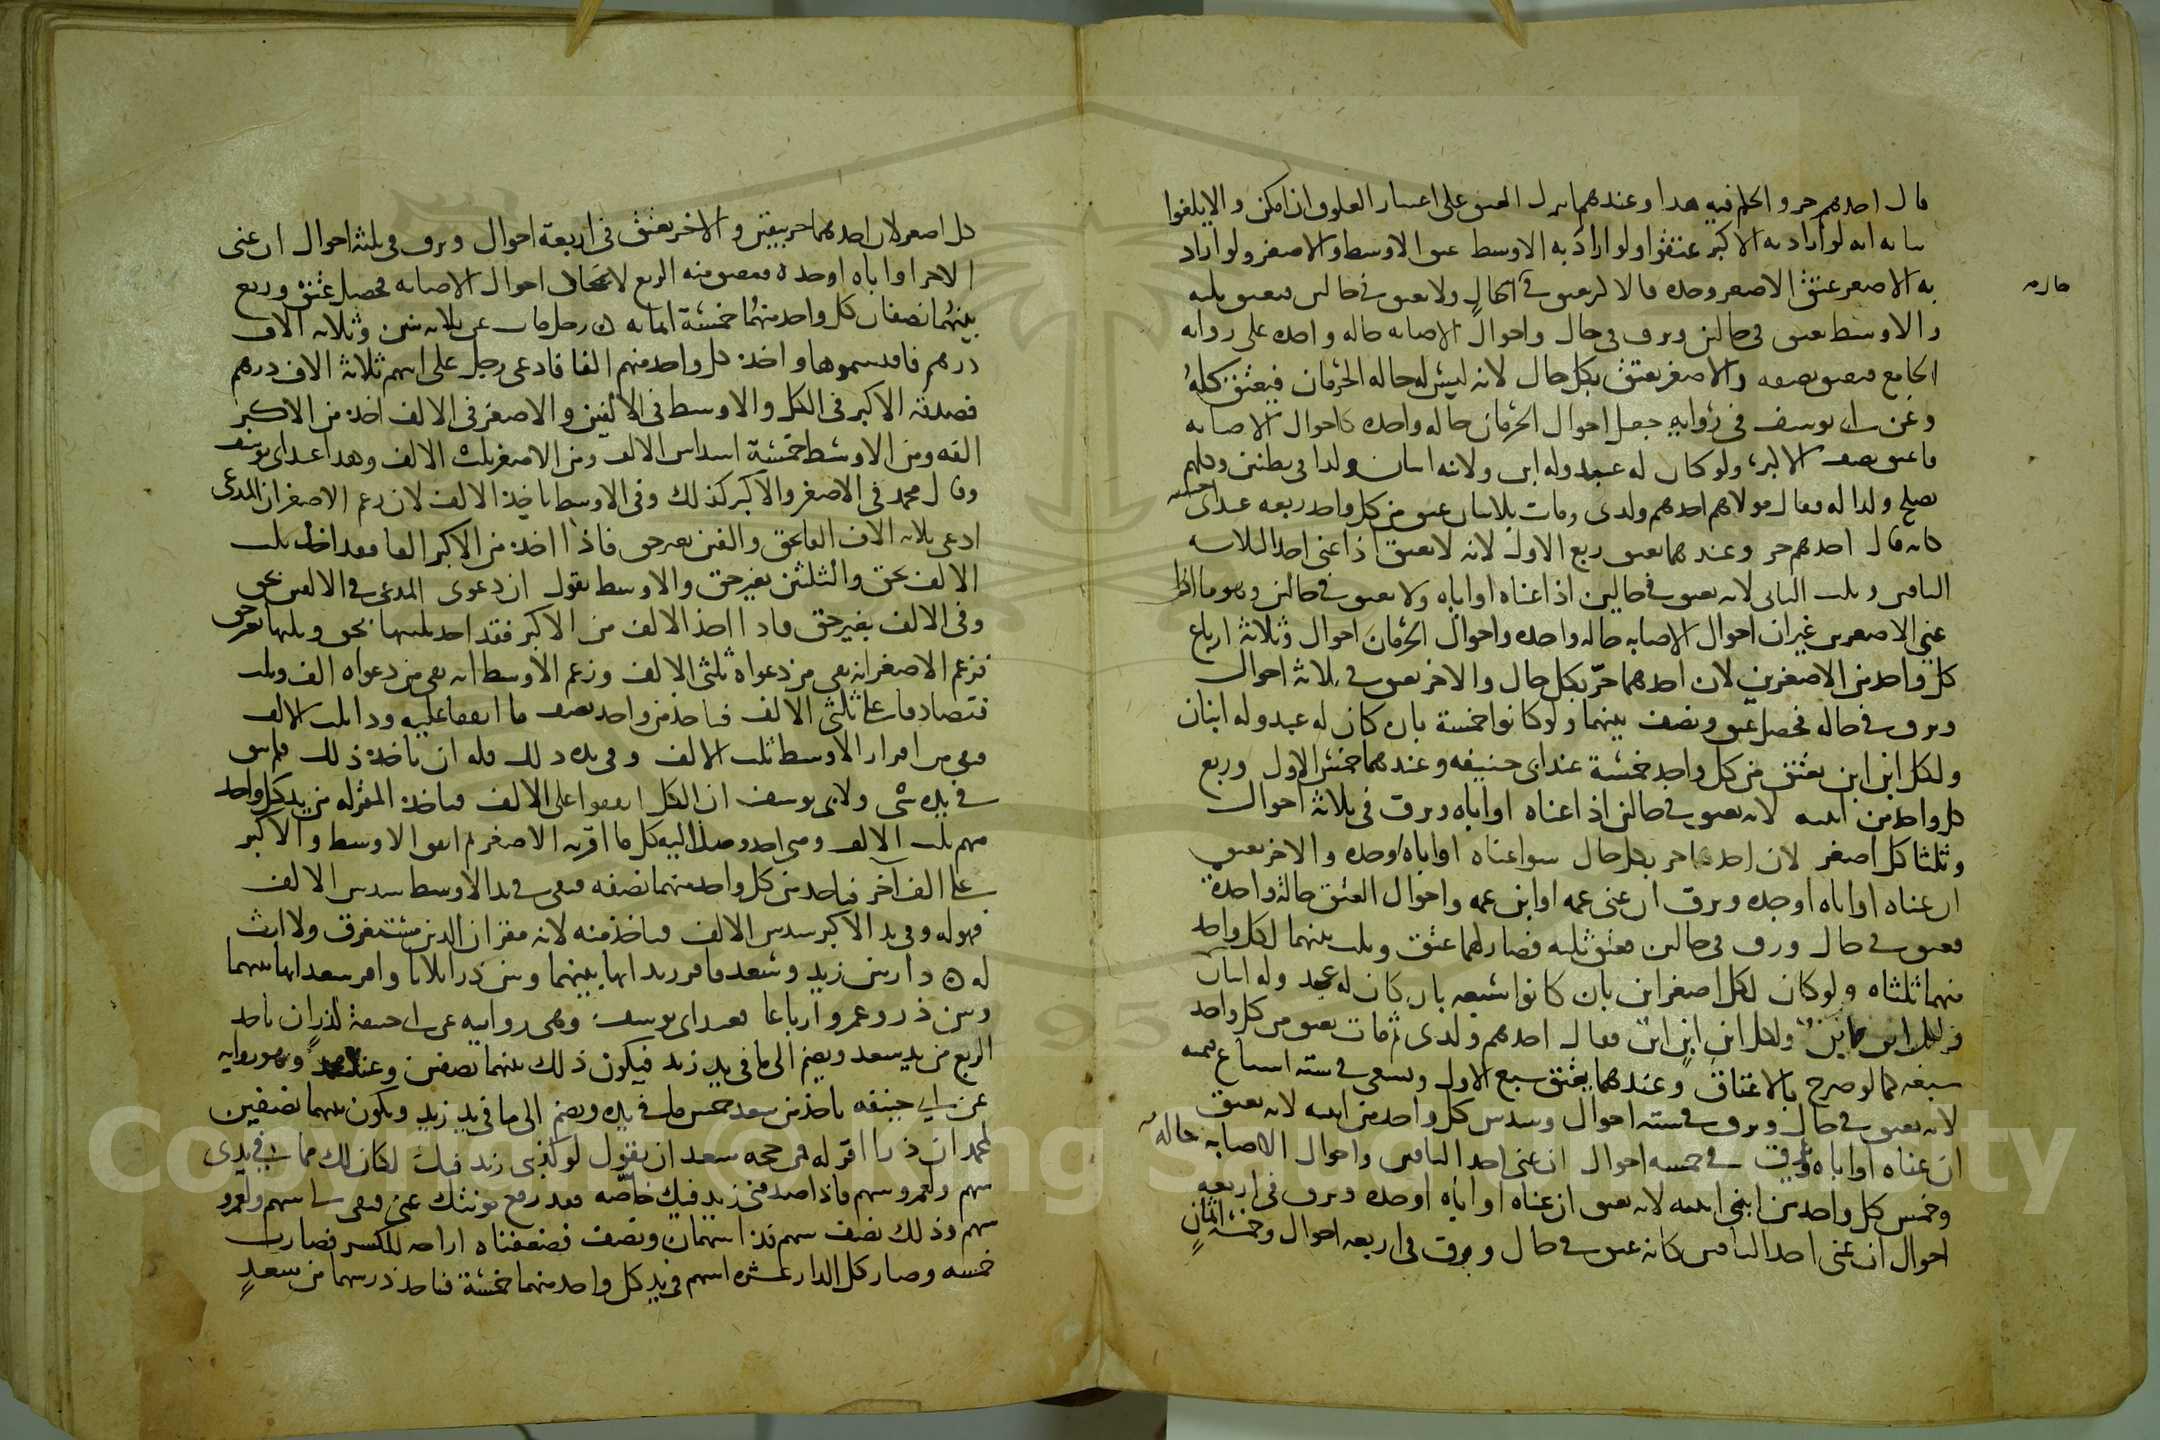 قال احدهم حر والحكم فيه هذا وعندهما العتق على اعتبار العلوق ان امكن والا يلغوا
بيانه انه لو اراد به الاكبر عتقوا ولو اراد به الاوسط عتق الاوسط والاصغر ولو اراد
به الاصغر عتق الاصغر وحده فالاكبر يعتق في حال ولا يعتق في حالين فيعتق ثلثه
والاوسط يعتق في حالين ويرق في حال واحوال الاصابه حاله واحده على روايه
الجامع فيعتق نصفه والاصغر يعتق بكل حال لانه ليس له حاله الحرمان فيعتق كله
وعن ابي يوسف في روايه جعل احوال الحرمان حاله واحده كاحوال الاصابه
فاعتق نصف الاكبر ولو كان له عبد وله ابن ولابنه ابنان ولدا في بطنين وكلهم
يصلح ولدا له فقال مولاهم احدهم ولدى ومات بلا بيان عتق من كل واحد ربعه عند ابى حنيفه
كانه قال احدهم حر وعندهما يعتق ربع الاول لانه لا يعتق اذا عنى احد الثلاثه
الباقين وثلث الثانى لانه يعتق في حالين اذا عناه او اباه ولا يعتق في حالين وهو ما اذا
عنى الاصغرين غير ان احوال الاصابه حاله واحده واحوال الحرمان احوال وثلاثة ارباع
كل واحد من الاصغرين لان احدهما حر بكل حال والاخر يعتق في ثلاثة احوال
ويرق في حاله فحصل عتق ونصف بينهما ولو كانوا خمسة بان كان له عبد وله ابنان
ولكل ابن ابن يعتق من كل واحد خمسة عند ابى حنيفه وعندهما خمس الاول وربع
كل واحد من ابنيه لانه يعتق في حالين اذا عناه او اباه ويرق في ثلاثة احوال
وثلثا كل اصغر لان احدهما حر بكل حال سوا عناه او اباه او جده والاخر يعتق
ان عناه او اباه او جده ويرق ان عنى عمه او ابن عمه واحوال العتق حالة واحدة
فيعتق في حال ورق في حالين فعتق ثلثه فصار لهما عتق وثلث بينهما لكل واحد
منهما ثلثاه ولو كان لكل اصغر ابن بان كانوا سبعه بان كان له عبد وله ابنان
ولكل ابن ابن ولكل ابن ابن ابن فقال احدهم ولدى ثم مات يعتق من كل واحد
سبعه كما لو صرح بالاعتاق وعندهما يعتق سبع الاول ويسعى في سته اسباع قيمته
لانه يعتق في حال ويرق في سته احوال وسدس كل واحد من ابنيه لانه يعتق
ان عناه او اباه ويرق في خمسه احوال ان عنى احد الباقين واحوال الاصابه حاله
وخمس كل واحد من ابنى ابنيه لانه يعتق ان عناه او اباه او جده ويرق في اربعه
احوال ان عنى احد الباقين كانه عتق في حال ويرق في اربعه احوال وخمسة اثمان
كل اصغر لان احدهما حر بيقين والاخر يعتق في اربعة احوال ويرق في ثلثة احوال ان عنى
الاخر او اباه او جده فيعتق منه الربع لاتحاد احوال الاصابه فحصل عتق وربع
بينهما نصفان كل واحد منهما خمسة اثمانه رجل مات عن ثلاثه بنين وثلاثه الاف
درهم فاقتسموها واخذ كل واحد منهم الفا فادعى رجل على ابيهم ثلاثة الاف درهم
فصدقه الاكبر في الكل والاوسط في الالفين والاصغر في الالف اخذ من الاكبر
الفه ومن الاوسط خمسة اسداس الالف ومن الاصغر ثلث الالف وهذا عند ابى يوسف
وقال محمد في الاصغر والاكبر كذلك وفي الاوسط ياخذ الالف لان زعم الاصغر ان المدعى
ادعى ثلاثه الاف الفا بحق والفين بغير حق فاذا اخذ من الاكبر الفا فقد اخذ ثلث
الالف بحق والثلثين بغير حق والاوسط يقول ان دعوى المدعى في الالفين بحق
وفى الالف بغير حق فاذا اخذ الالف من الاكبر فقد اخذ ثلثيها بحق وثلثها بغير حق
فزعم الاصغر انه بقى من دعواه ثلثى الالف وزعم الاوسط انه بقى من دعواه الف وثلث
فتصادقا على ثلثى الالف فياخذ من واحد نصف ما اتفقا عليه وذا ثلث الالف
فبقى من اقرار الاوسط ثلث الالف وفي يده ذلك فله ان ياخذ ذلك فلم يبق
في يده شى ولابى يوسف ان الكل اتفقوا على الالف فياخذ المقر له من يد كل واحد
منهم ثلث الالف ومتى اخذ وصل اليه كل ما اقر به الاصغر ثم اتفق الاوسط والاكبر
على الف آخر فياخذ من كل واحد منهما نصفه فبقى في يد الاوسط سدس الالف
فهو له وفي يد الاكبر سدس الالف فياخذ منه لانه مقر ان الدين مستغرق ولا ارث
له دار بين زيد وسعد فاقر زيد انها بينهما وبين ذر اثلاثا واقر سعد انها بينهما
وبين ذر وعمرو ارباعا فعند ابى يوسف وهى روايته عن ابى حنيفة لذر ان ياخذ
الربع من يد سعد ويضم الى ما في يد زيد فيكون ذلك بينهما نصفين وعند محمد وهو روايه
عن ابى حنيفه ياخذ من سعد خمس ما في يده ويضم الى ما في يد زيد ويكون بينهما نصفين
لمحمد ان ذرا اقر له من حجه سعد ان يقول لو كذبنى زيد فيك لكان لك مما في يدى
سهم ولعمرو سهم فاذا صدقنى زيد فيك خاصه فقد رفع مونتك عنى فبقى لى سهم ولعمرو
سهم وذلك نصف سهم فذا سهمان ونصف فضعفناه ازاحه للكسر فصارت
خمسه وصار كل الدار عشره اسهم في يد كل واحد منهما خمسة فياخذ ذر سهما من سعد
Copyright © King Saud University